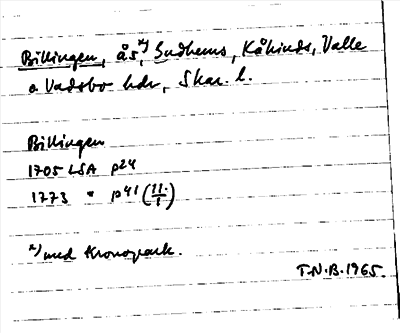 Billingen, ås*), Gudhems, Kåkinds, Valle
o Vadsbo hdr, Skar. l.
Billingen
1705 LSA p24
1773 " p41 (11./1)
*) med Kronopark.
T.N.B. 1965.